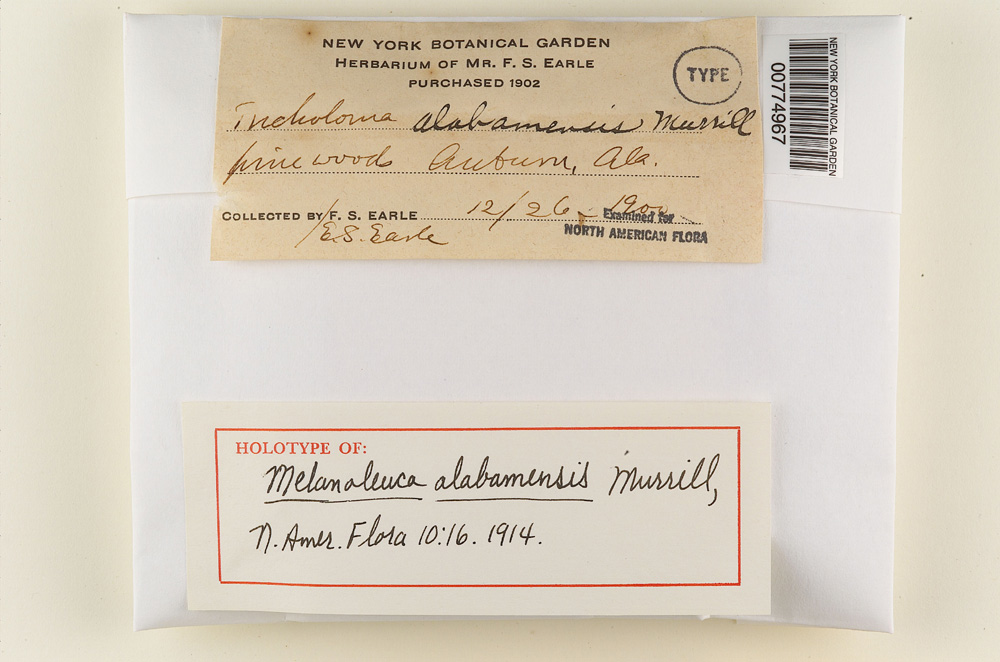 NEW YORK BOTANICAL GARDEN
HERBARIUM OF MR. F. S. EARLE
PURCHASED 1902
TYPE
Tricholoma alabamensis Murrill
pine woods Auburn, Ala.
COLLECTED BY F. S. EARLE 12/26-1900
/E.S. Earle
Examined for
NORTH AMERICAN FLORA
NEW YORK BOTANICAL GARDEN
00774967
HOLOTYPE OF:
Melanoleuca alabamensis Murrill,
N. Amer. Flora 10:16. 1914.